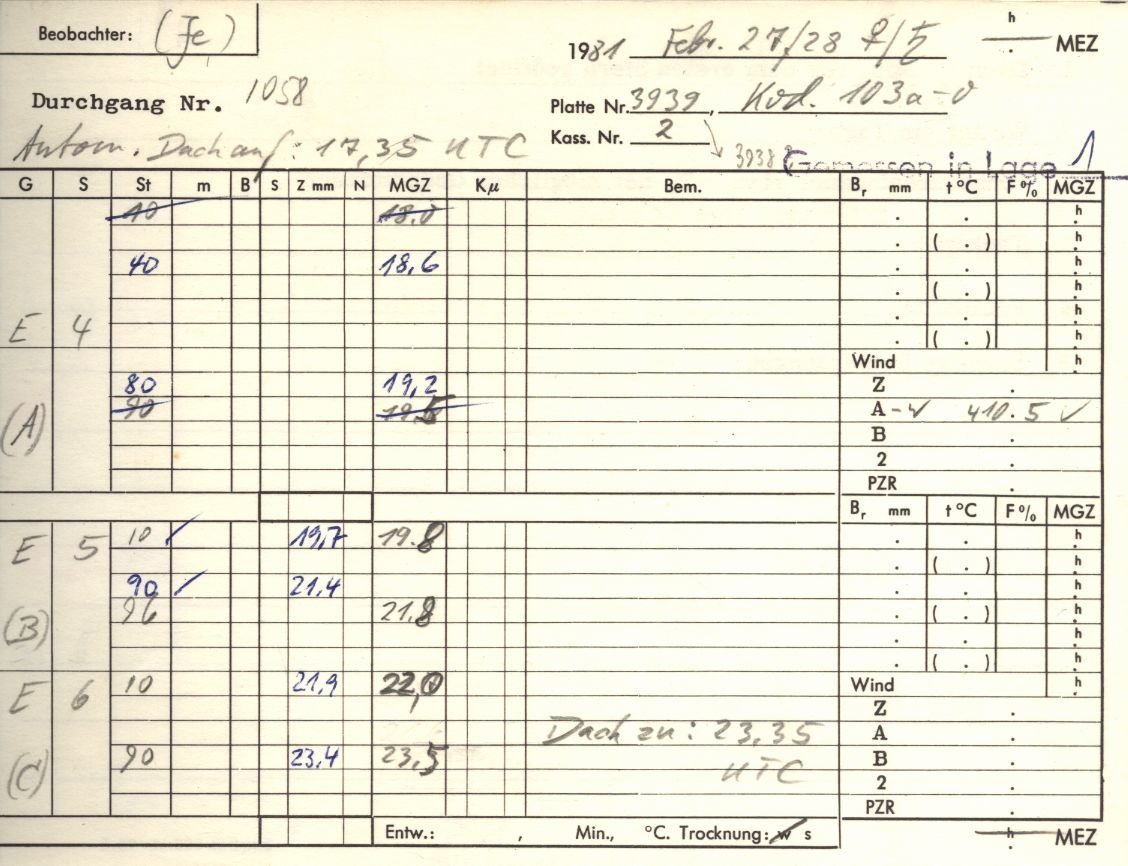 Beobachter: (Je)
1981 Febr. 27/28 ♀/♄ h . MEZ
Durchgang Nr. 1058
Platte Nr. 3939, Kod. 103a-O
Kass. Nr. 2
Autom. Dach auf: 17,35 UTC
3938 Gemessen in Lage 1
G S St m B S Z mm N MGZ Kμ Bem. Br mm t°C F% MGZ
10 18.0 . . h
. ( . )  h
40 18,6 . . h
. ( . ) h
E 4 . . h
. ( . ) h
Wind h
80 19,2 Z .
(A) 90 19.5 A - 410.5 ✓
B .
2 .
PZR .
Br mm t°C F% MGZ
E 5 10 ✓ 19,7 19.8 . . h
. ( . ) h
90 ✓ 21,4 . . h
(B) 96 21.8 . ( . ) h
. . h
. ( . ) h
E 6 10 21,9 22,0 Wind h
Z .
Dach zu: 23,35 A .
(C) 90 23,4 23,5 UTC B .
2 .
PZR .
Entw.: , Min., °C. Trocknung: w s h . MEZ